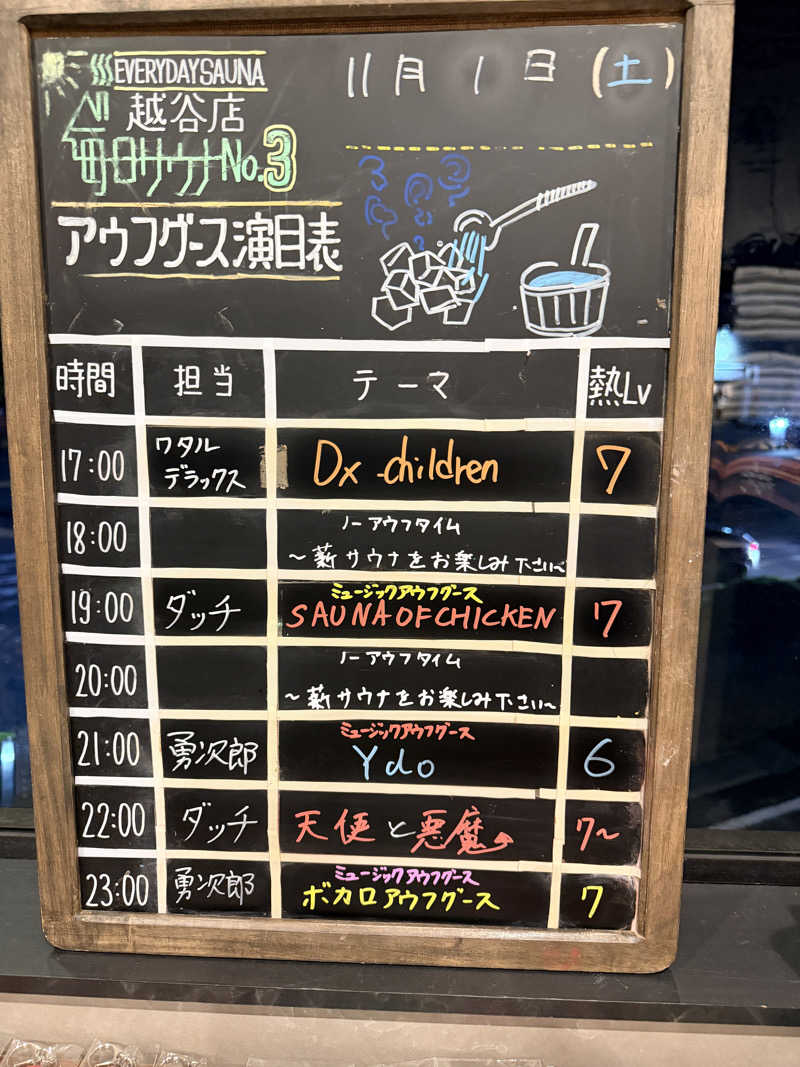 EVERYDAYSAUNA
越谷店
毎日サウナNo.3
アウフグース演目表
11月 1日 (土)
時間 担当 テーマ 熱Lv
17:00 ワタル デラックス Dx-children 7
18:00 ノーアウフタイム
〜薪サウナをお楽しみ下さい〜
19:00 ダッチ ミュージックアウフグース
SAUNA OF CHICKEN 7
20:00 ノーアウフタイム
〜薪サウナをお楽しみ下さい〜
21:00 勇次郎 ミュージックアウフグース
Ydo 6
22:00 ダッチ 天使と悪魔 7~
23:00 勇次郎 ミュージックアウフグース
ボカロアウフグース 7